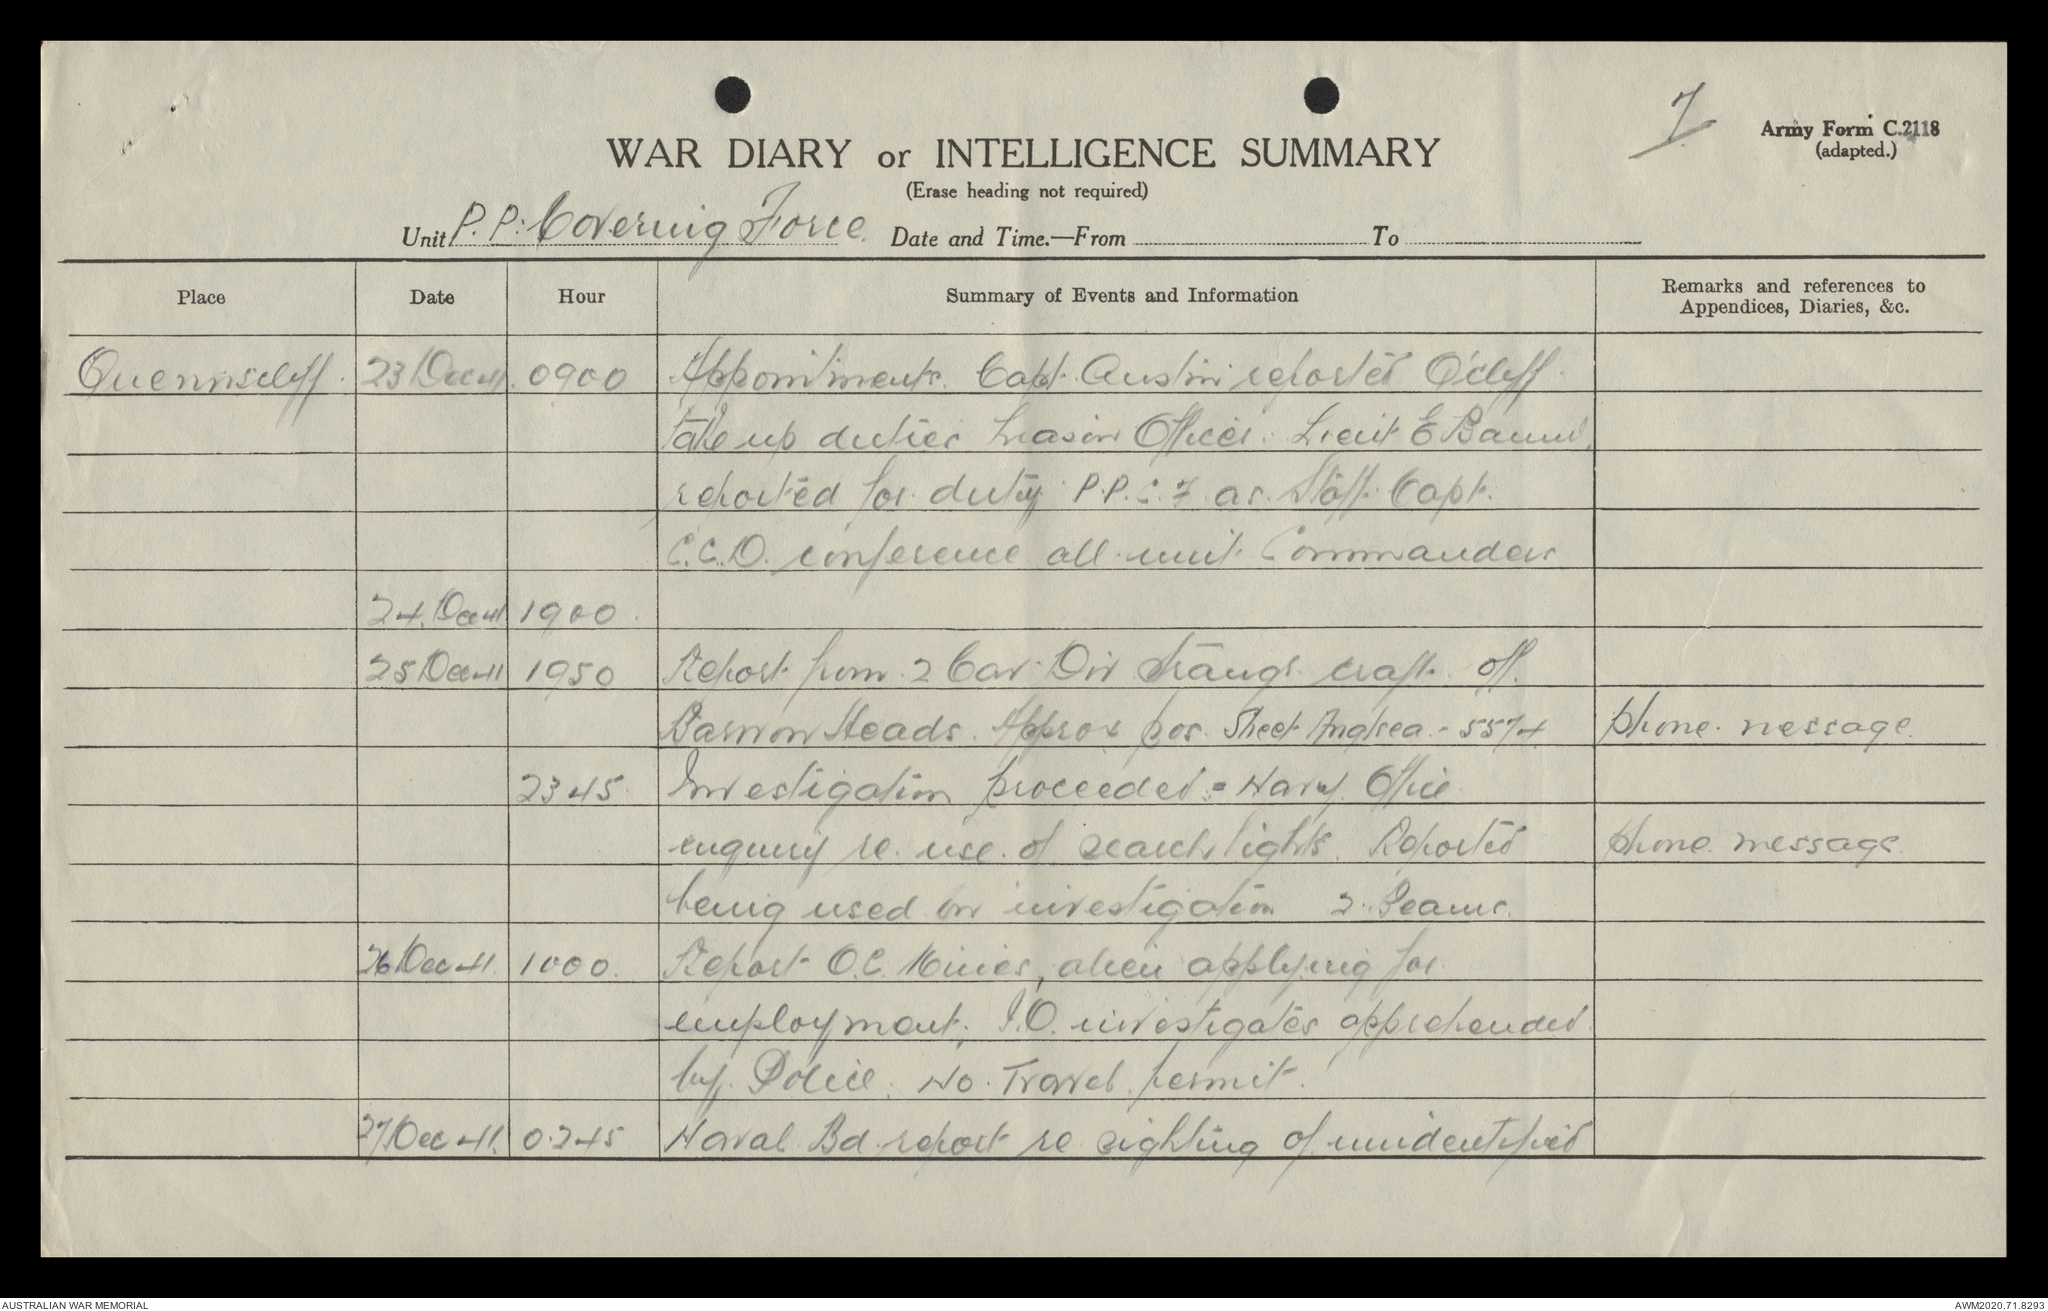 7
Army Form C.2118
(adapted.)
WAR DIARY or INTELLIGENCE SUMMARY
(Erase heading not required)
Unit P.P. Covering Force. Date and Time.—From To
Place Date Hour Summary of Events and Information Remarks and references to Appendices, Diaries, &c.
Quennscliff. 23 Dec 41. 0900 Appointments. Capt. Austin reported Q'cliff.
take up duties Liason Officer. Lieut E
reported for duty P.P.C.F as Staff Capt.
C.C.D. conference all unit Commanders
24. Dec 41 1900.
25 Dec 41 1950 Report from 2 Cav. Div strange craft off.
Barwon Heads. Approx pos. Sheet Anglsea - 5574 phone message.
2345. Investigation proceeded = Navy Office
enquiry re. use of searchlights. Reported phone message.
being used on investigation 2 Beams.
26 Dec 41. 1000. Report O.C. Mines, alien applying for
employment. I.O. investigates apprehended
by Police. No Travel permit.
27 Dec 41. 0245 Naval Bd report re sighting of unidentified
AUSTRALIAN WAR MEMORIAL
AWM2020.71.8293